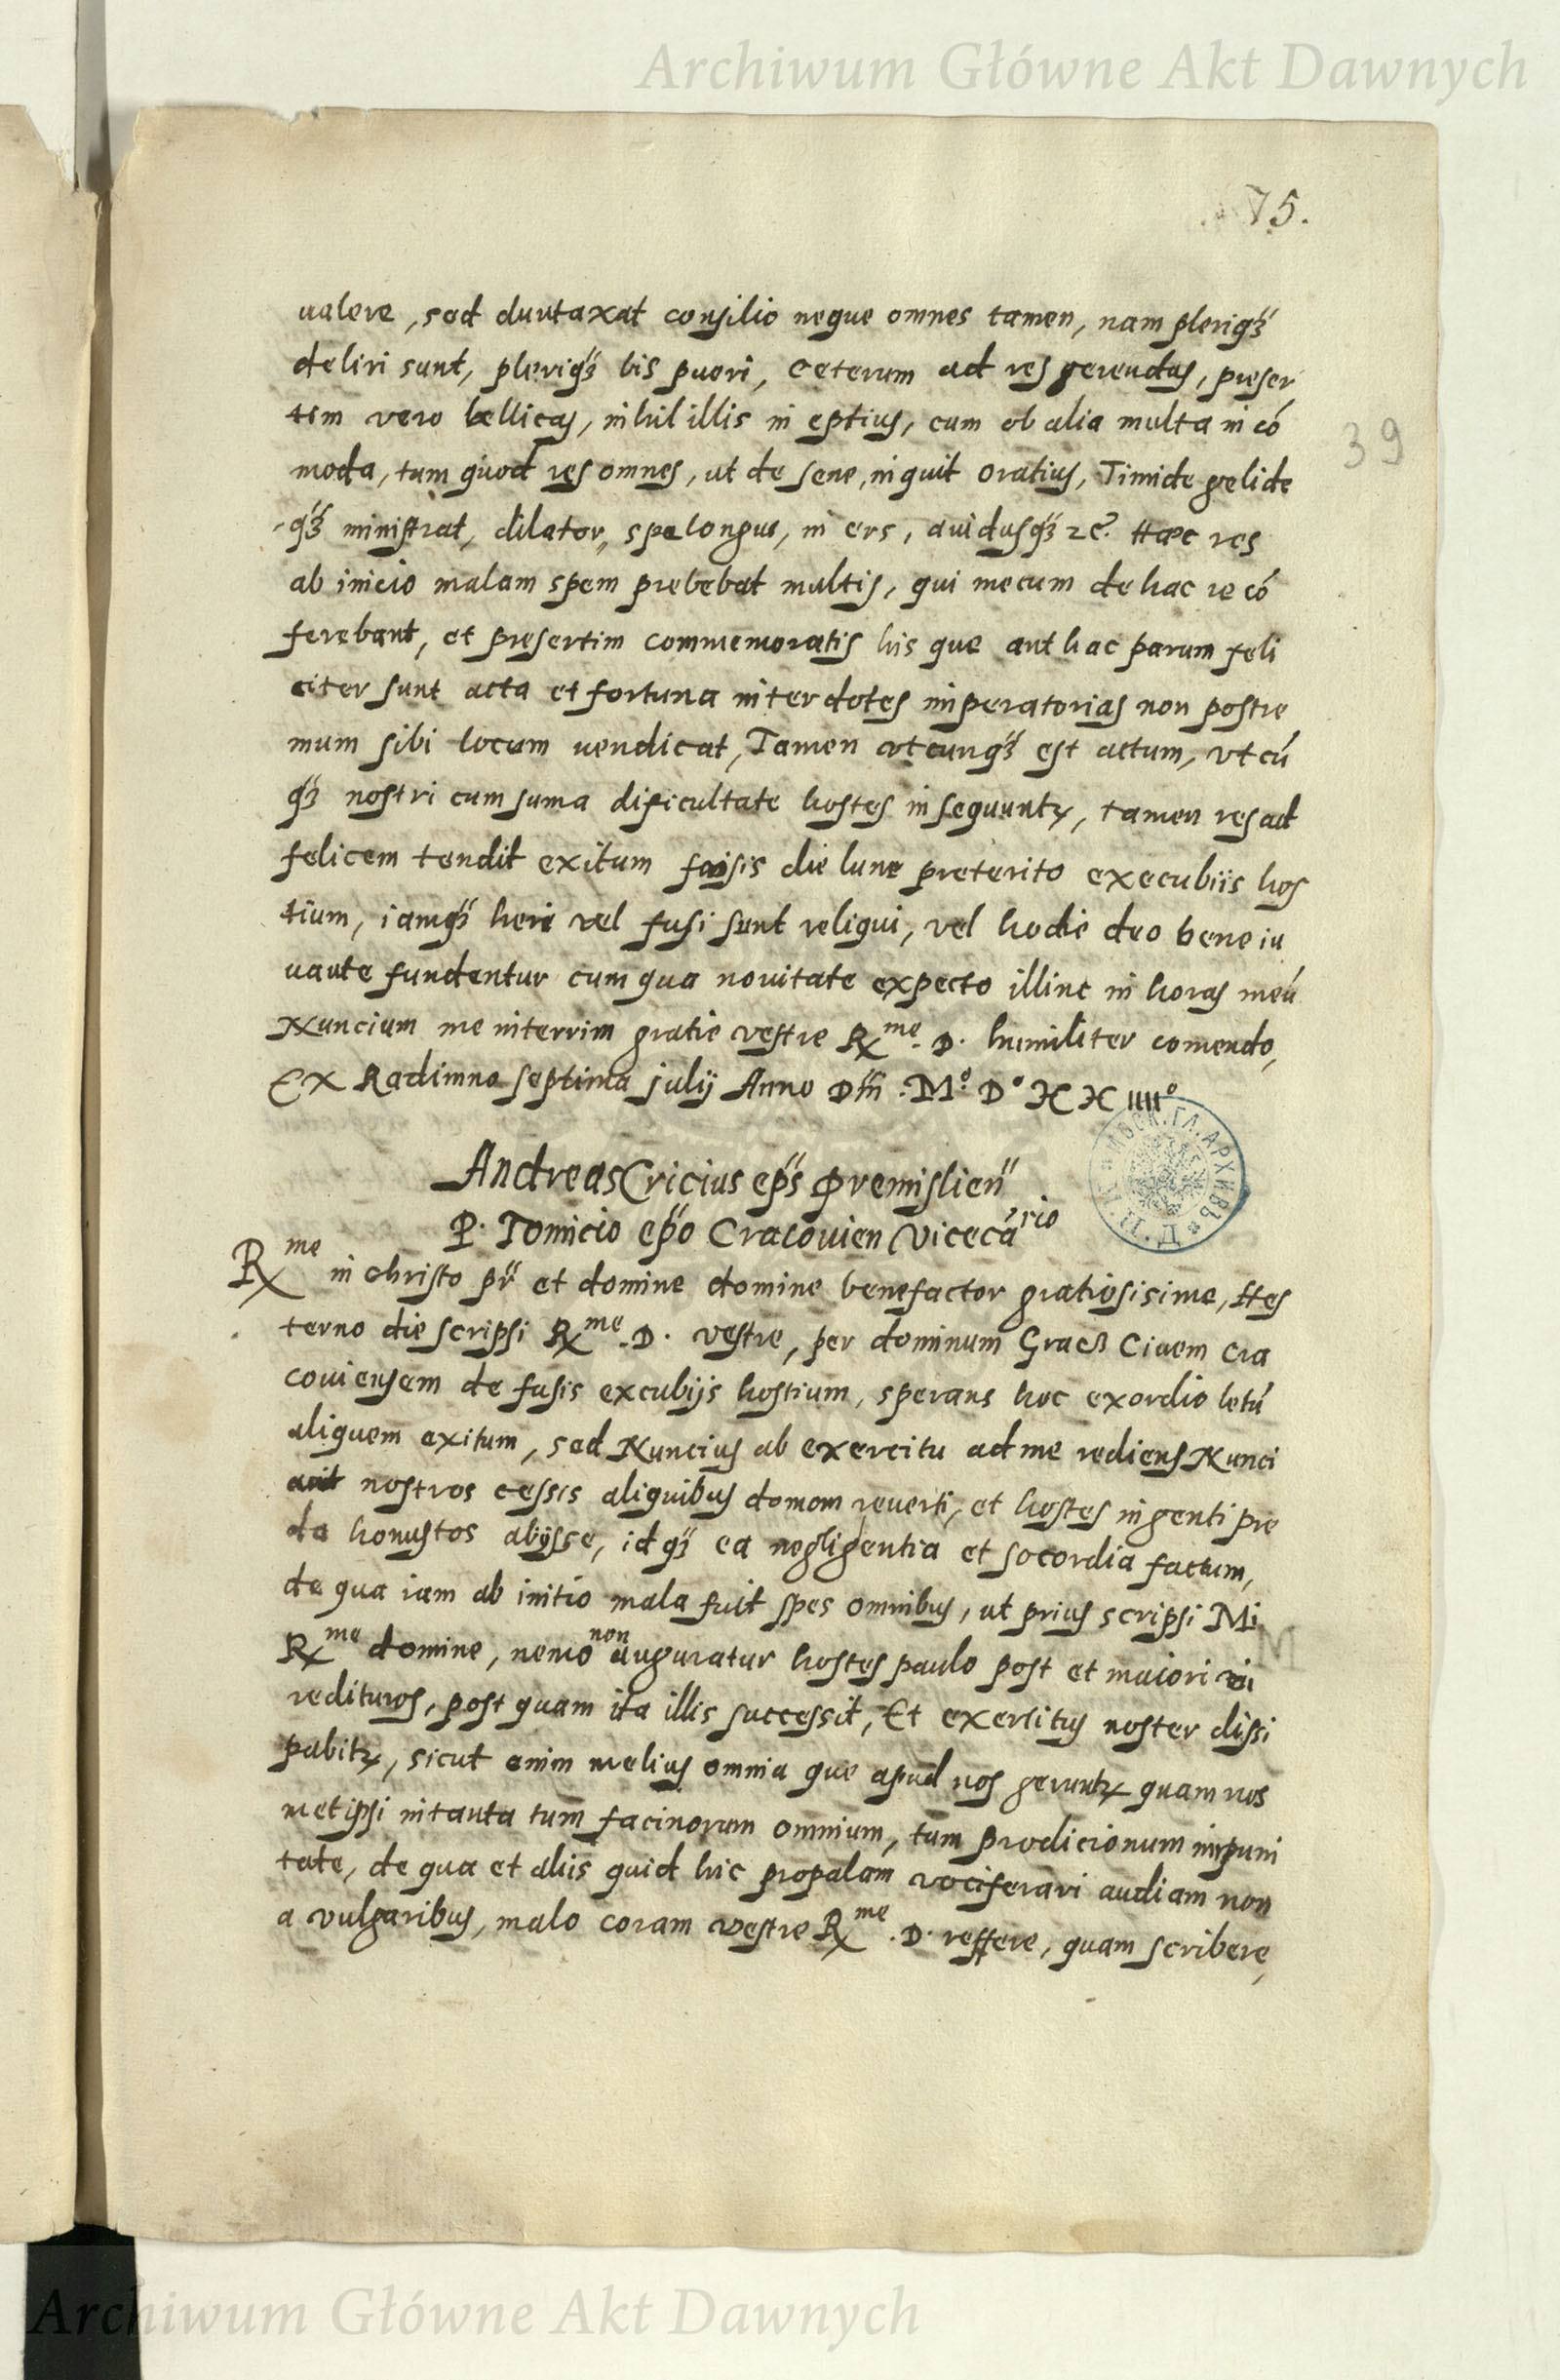 Archiwum Główne Akt Dawnych
75.
39
ualere, sed duntaxat consilio neque omnes tamen, nam pleriqꝫ
deliri sunt, pleriqꝫ bis pueri, ceterum ad res gerendas, preser
tim vero bellicas, nihil illis in eptius, cum ob alia multa in có
moda, tum quod res omnes, ut de sene, inquit oratius, Timide gelide
qꝫ ministrat, dilator, spe longus, in ers, auidusqꝫ ⁊c̃. Hæc res
ab inicio malam spem prebebat multis, qui mecum de hac re có
ferebant, et presertim commemoratis his que ant hac parum feli
citer sunt acta et fortuna inter dotes imperatorias non postre
mum sibi locum uendicat, Tamen vtcunqꝫ est actum, vt cú
qꝫ nostri cum suma dificultate hostes insequuntꝝ, tamen res ad
felicem tendit exitum fusis die lune preterito execubiis hos
tium, iamqꝫ heri vel fusi sunt reliqui, vel hodie deo bene iu
uante fundentur cum qua nouitate expecto illinc in horas meú
Nuncium me interrim gratie vestre Rme. D. humiliter comendo,
Ex Radimno septima julij Anno Dñi .Mº Dº XX iiiiº
МОСК. ГЛ. АРХИВЪ
Andreas Cricius ep̃s Premislień
P. Tomicio ep̃o Cracouien Vicecãrio
Rme in christo pr̃ et domine domine benefactor gratiosisime, Hes
terno die scripsi Rme .D. vestre, per dominum Gracß Ciuem cra
couiensem de fusis excubijs hostium, sperans hoc exordio letú
aliquem exitum, sed Nuncius ab exercitu ad me rediens Nunci
auit nostros cessis aliquibus domom reuerti, et hostes ingenti pre
da honustos abijsse, id qꝫ ea negligentia et socordia factum,
de qua iam ab initio mala fuit spes omnibus, ut prius scripsi Mi
M
Rme domine, nemo non auguratur hostes paulo post et maiori vi
redituros, post quam ita illis successit, Et exercitus noster dissi
pabitꝝ, sicut enim melius omnia que apud nos geruntꝝ quam nos
metipsi in tanta tum facinorum omnium, tum prodicionum impuni
tate, de qua et aliis quid hic propalam vociferari audiam non
a vulgaribus, malo coram vestre Rme .D. reffere, quam scribere,
Archiwum Główne Akt Dawnych